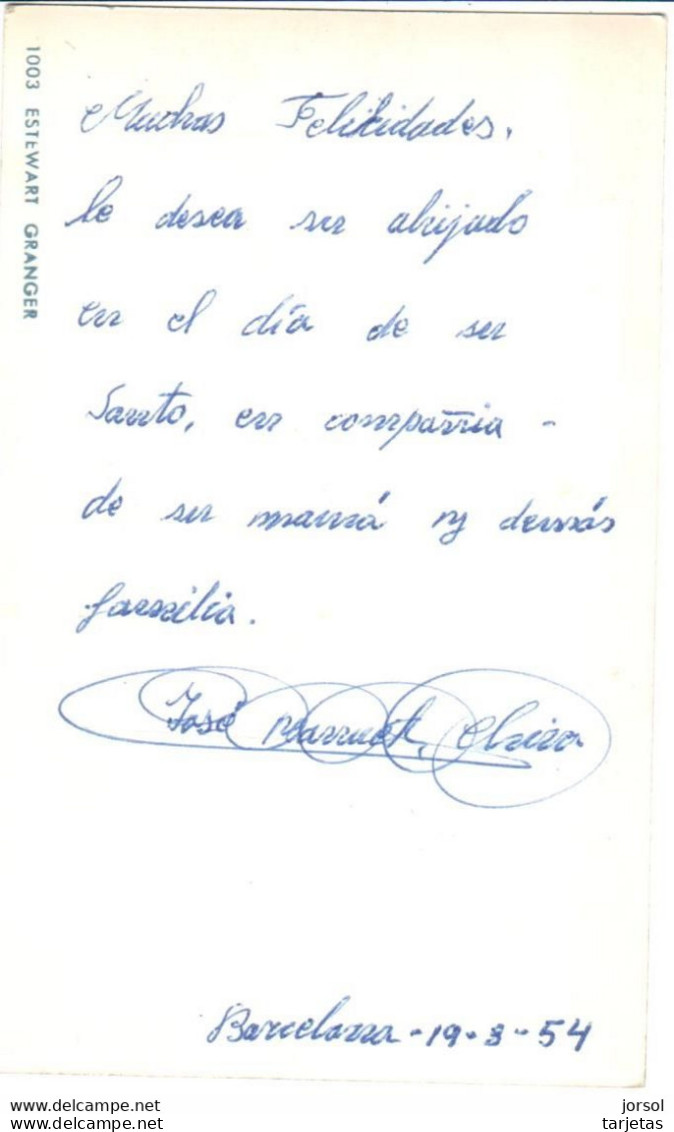 1003 ESTEWART GRANGER
Muchas Felicidades,
le desea su ahijado
en el día de su
Santo, en compañia -
de su mamá y demás
familia.
José Manuel
Barcelona - 19-3-54
www.delcampe.net
jorsol
tarjetas